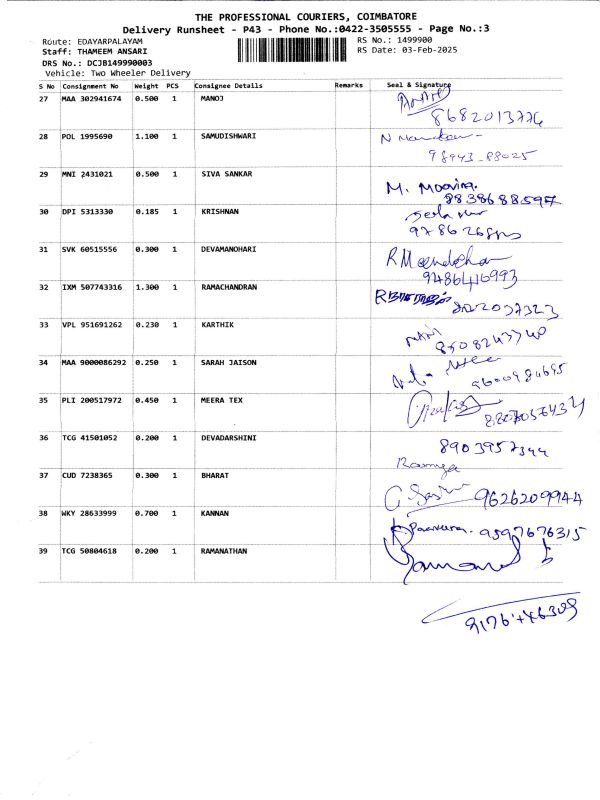 THE PROFESSIONAL COURIERS, COIMBATORE
Delivery Runsheet - P43 - Phone No.:0422-3505555 - Page No.:3
Route: EDAYARPALAYAM RS No.: 1499900
Staff: THAMEEM ANSARI RS Date: 03-Feb-2025
DRS No.: DCJB149990003
Vehicle: Two Wheeler Delivery
S No Consignment No Weight PCS Consignee Details Remarks Seal & Signature
27 MAA 302941674 0.500 1 MANOJ
28 POL 1995690 1.100 1 SAMUDISHWARI
98943-88025
29 MNI 2431021 0.500 1 SIVA SANKAR
M.
8838688597
30 DPI 5313330 0.185 1 KRISHNAN
31 SVK 60515556 0.300 1 DEVAMANOHARI
9486416993
32 IXM 507743316 1.300 1 RAMACHANDRAN
33 VPL 951691262 0.230 1 KARTHIK
8508243740
34 MAA 9000086292 0.250 1 SARAH JAISON
9600984695
35 PLI 200517972 0.450 1 MEERA TEX
36 TCG 41501052 0.200 1 DEVADARSHINI
8903957344
Ramya
37 CUD 7238365 0.300 1 BHARAT
9626209944
38 WKY 28633999 0.700 1 KANNAN
9597676315
39 TCG 50804618 0.200 1 RAMANATHAN